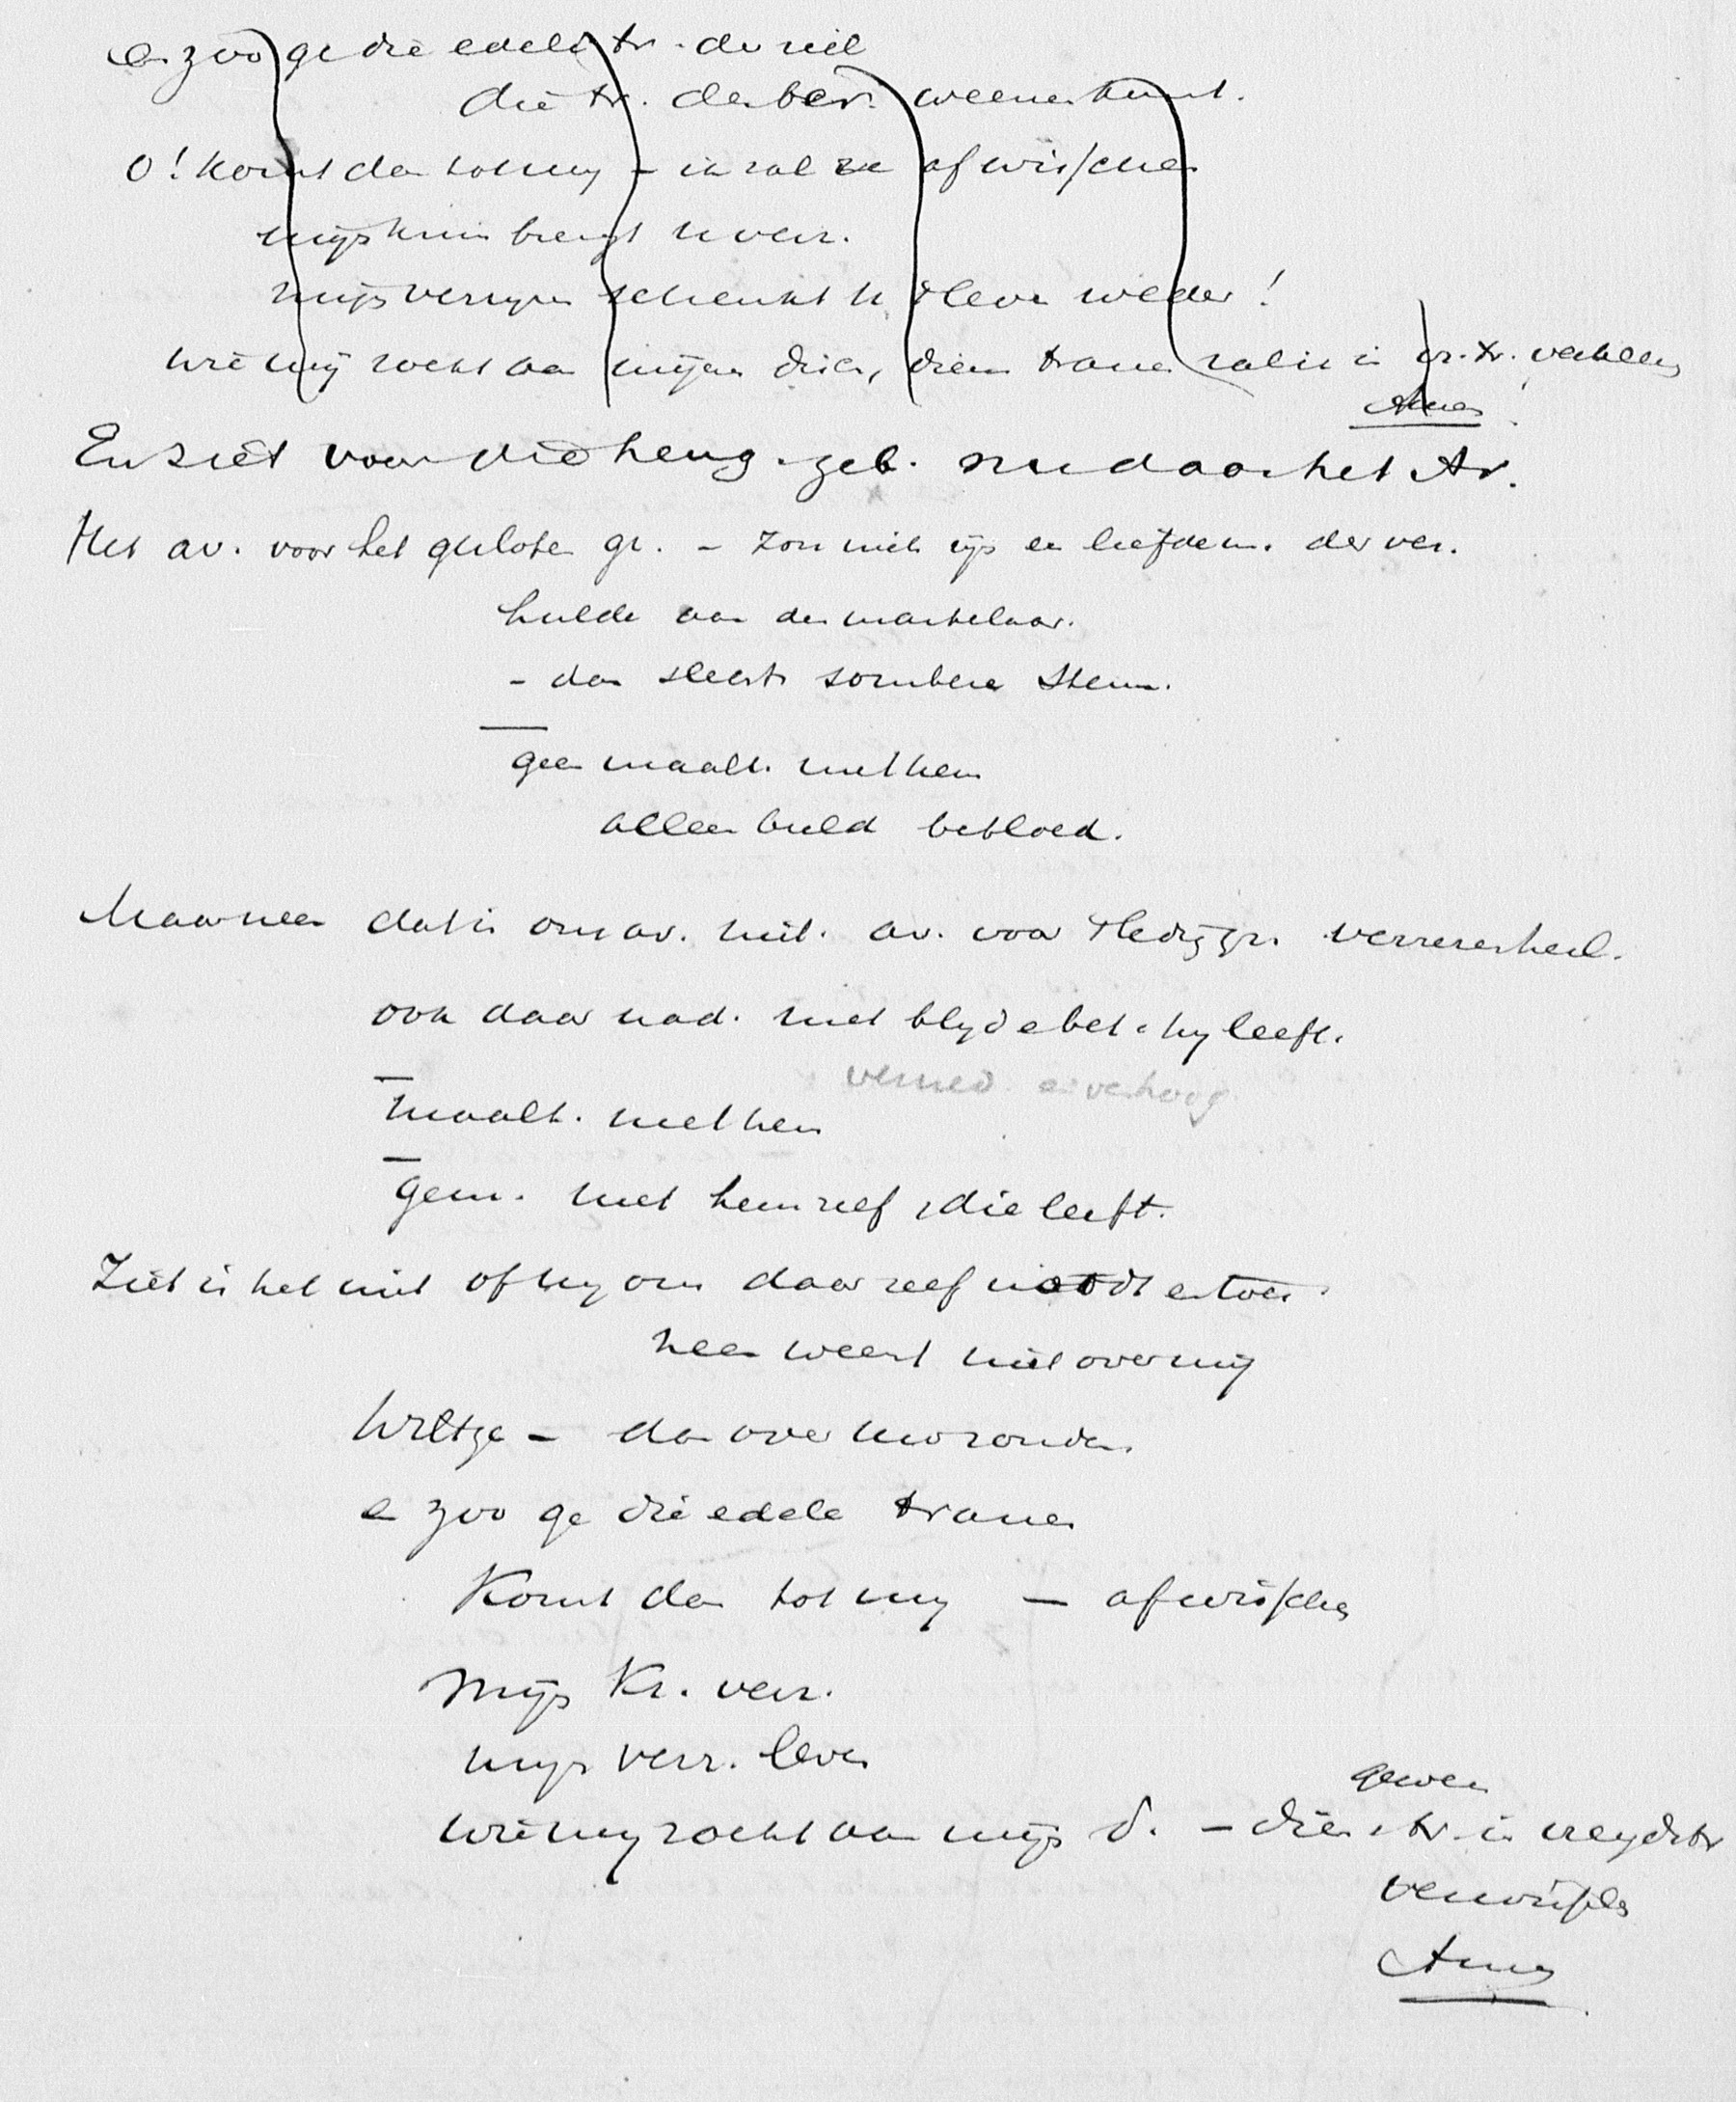 en zoo ge die edele tr. der ziel
die tr. der ber. weenen kunt.
O! Komt dan tot mij - ik zal ze afwisschen
mijn kruis brengt u verz.
mijn verrijzen schenkt u 't leven weder!
wie mij zoekt aan mijnen disch, diens tranen zal ik in vr. tr. verkeeren
Amen
En ziet voor die heug. geb. nu daar het Av.
Het av. voor het gesloten gr. - zou niet zijn en liefdem. der ver.
hulde aan den martelaar.
- dan slechts sombere stem.
geen maalt. met hem
alleen beeld bebloed.
Maar neen dat is ons av. niet. av. voor 't ledig gr. verrezen heil.
ook daar nad. met blijde bel. hij leeft.
verned. en verhoog.
maalt. met hem
gem. met hem zelf, die leeft.
Ziet is het niet of hij ons daar zelf noodt en toer.
neen weent niet over mij
Wilt ge - dan over uw zonden.
en zoo ge die edele tranen
Komt dan tot mij - afwisschen
Mijn Kr. verz.
mijn verr. leven
geween
wie mij zoekt aan mijn d. - diens tr. in vreugdetr
verwisselen
Amen